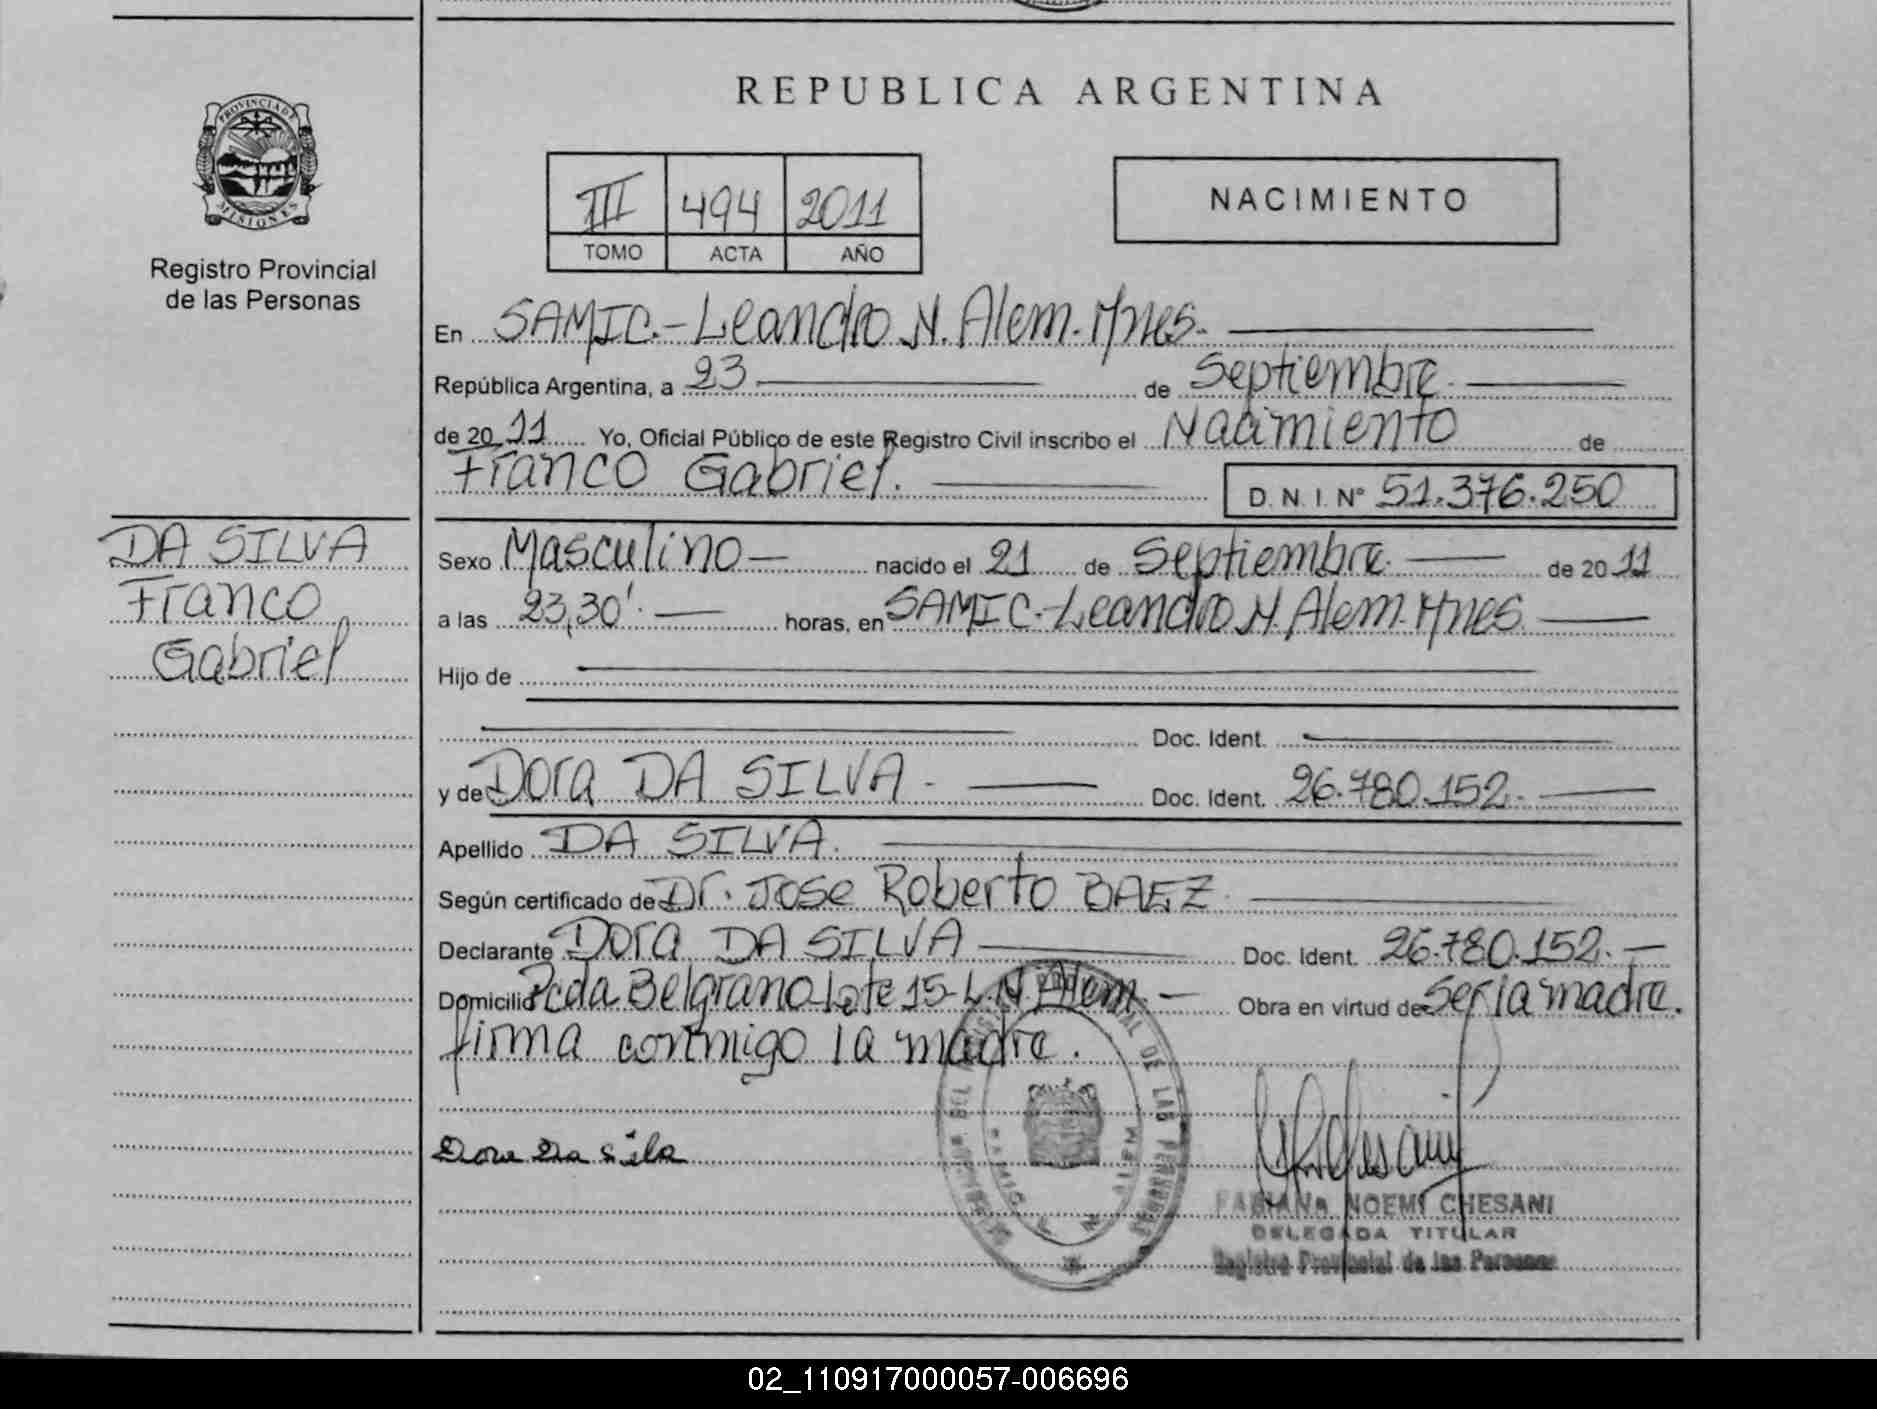 PROVINCIA DE
MISIONES
Registro Provincial
de las Personas
DA SILVA
Franco
Gabriel
REPUBLICA ARGENTINA
III 494 2011
TOMO ACTA AÑO
NACIMIENTO
En SAMIC.-Leandro N. Alem. Mnes.
República Argentina, a 23 de Septiembre.
de 20 11 Yo, Oficial Público de este Registro Civil inscribo el Nacimiento de
Franco Gabriel.
D. N. I. Nº 51.376.250
Sexo Masculino nacido el 21 de Septiembre. de 20 11
a las 23,30'. horas, en SAMIC.-Leandro N. Alem. Mnes.
Hijo de
Doc. Ident.
y de Dora DA SILVA. Doc. Ident. 26.780.152.
Apellido DA SILVA.
Según certificado de Dr. Jose Roberto BAEZ
Declarante Dora DA SILVA Doc. Ident. 26.780.152.
Domicilio Pcda Belgrano Lote 15-L.N. Alem. Obra en virtud de Ser la madre.
firma conmigo la madre.
Dora Da Sila
FABIANA NOEMI CHESANI
DELEGADA TITULAR
Registro Provincial de las Personas
02_110917000057-006696